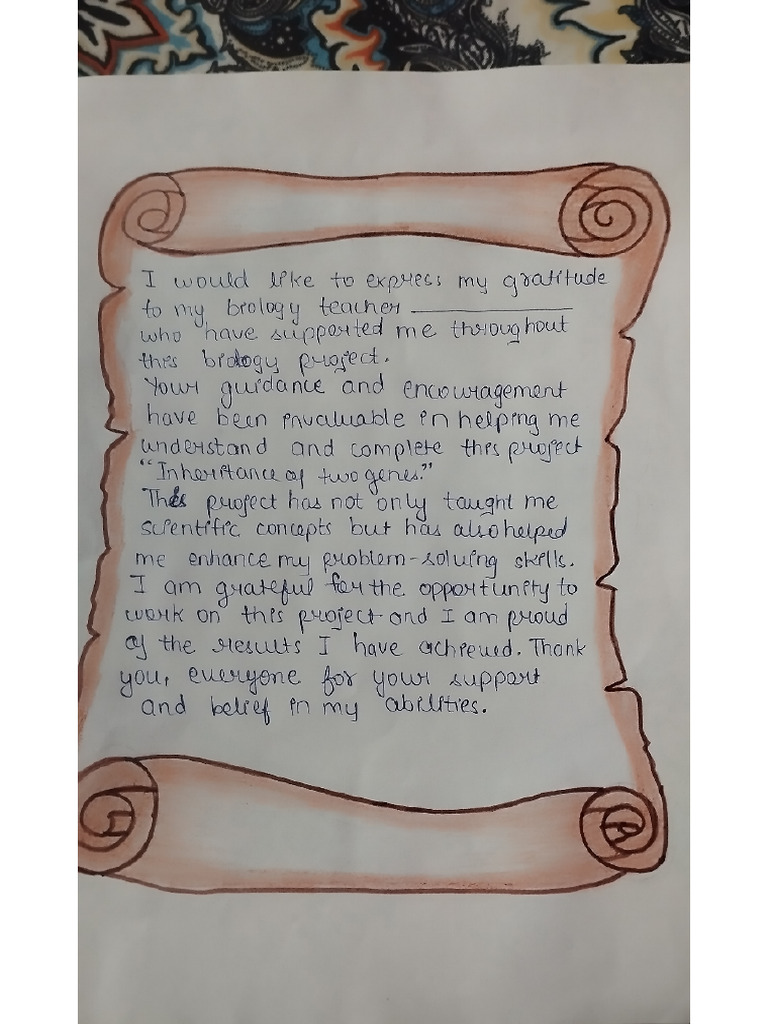 I would like to express my gratitude
to my biology teacher ____________
who have supported me throughout
this biology project.
Your guidance and encouragement
have been invaluable in helping me
understand and complete this project
"Inheritance of two genes."
This project has not only taught me
scientific concepts but has also helped
me enhance my problem-solving skills.
I am grateful for the opportunity to
work on this project and I am proud
of the results I have achieved. Thank
you, everyone for your support
and belief in my abilities.